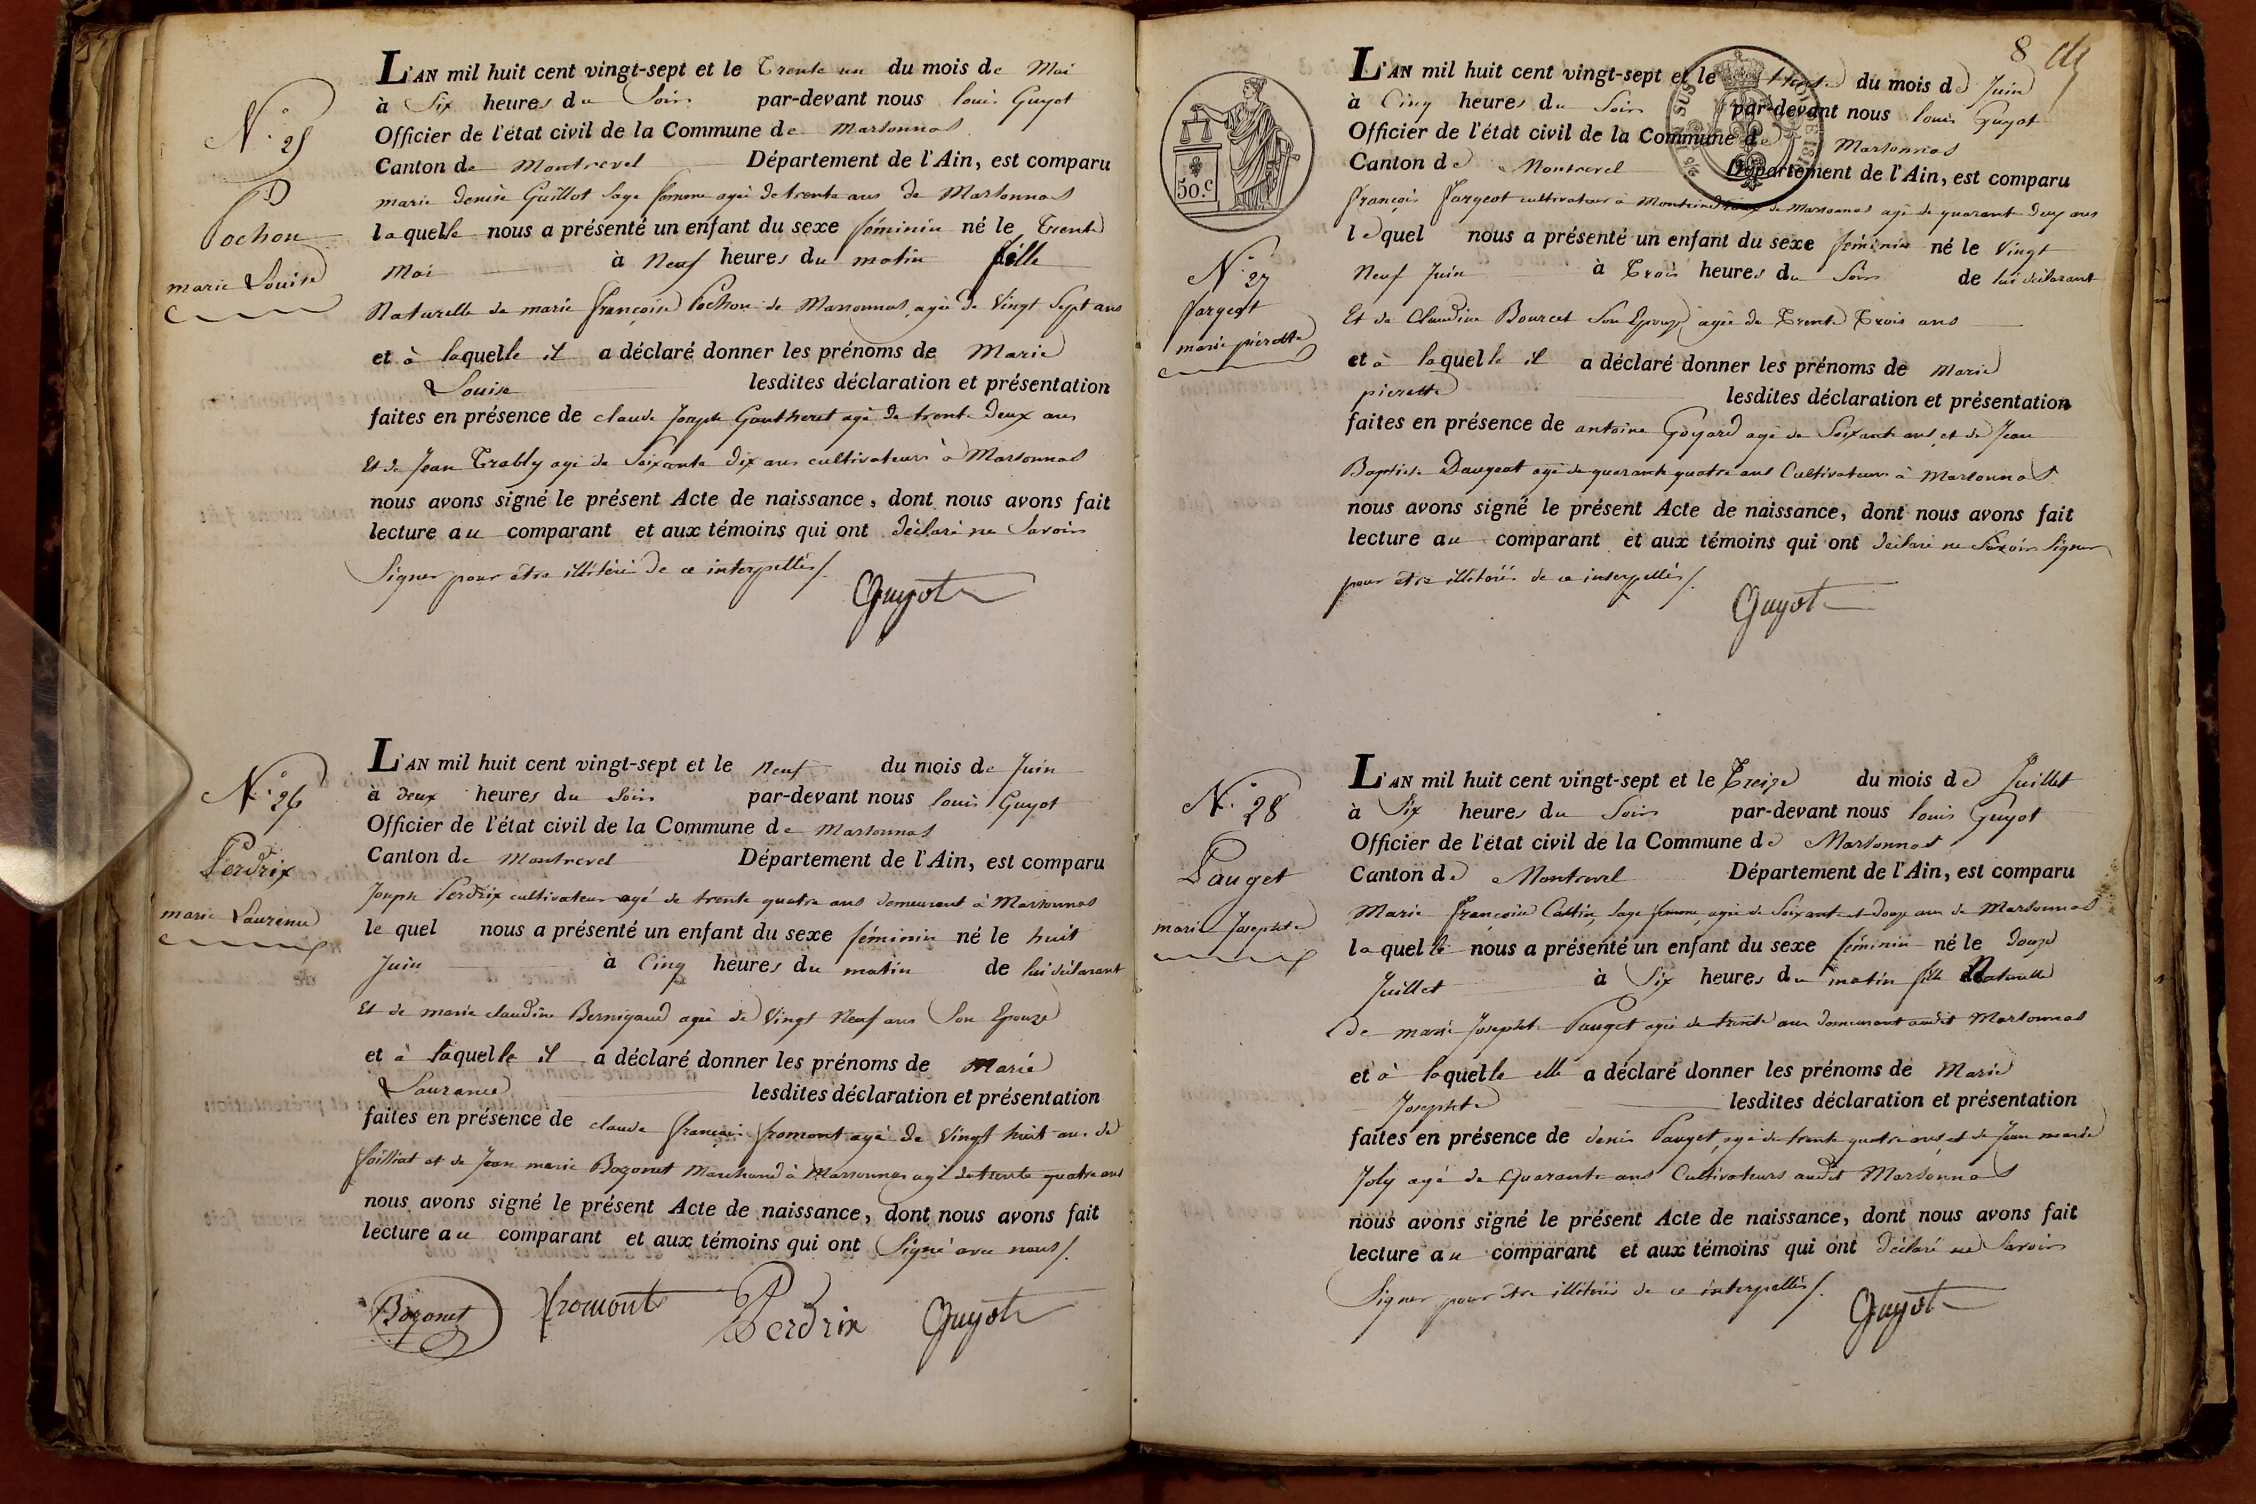 N.° 25
Pochon
marie Louise
L'AN mil huit cent vingt-sept et le Trente un du mois de Mai
à Six heures du Soir par-devant nous louis Guyot
Officier de l'état civil de la Commune de Marsonnas
Canton de Montrevel Département de l'Ain, est comparu
marie denise Guillot Sage femme agée de trente ans de Marsonnas
laquelle nous a présenté un enfant du sexe féminin né le Trente
Mai à Neuf heures du matin fille
Naturelle de marie françoise Pochon de Marsonnas agée de Vingt Sept ans
et à laquelle il a déclaré donner les prénoms de Marie
Louise lesdites déclaration et présentation
faites en présence de claude Joseph Gautheret agé de trente deux ans
Et de Jean Trably agé de Soixante dix ans cultivateurs à Marsonnas
nous avons signé le présent Acte de naissance, dont nous avons fait
lecture au comparant et aux témoins qui ont déclaré ne Savoir
Signer pour être illitéré de ce interpellés/.
Guyot
N.° 26
Perdrix
marie Laurence
L'AN mil huit cent vingt-sept et le Neuf du mois de Juin
à deux heures du Soir par-devant nous louis Guyot
Officier de l'état civil de la Commune de Marsonnas
Canton de Montrevel Département de l'Ain, est comparu
Joseph Perdrix cultivateur agé de trente quatre ans demeurant à Marsonnas
le quel nous a présenté un enfant du sexe féminin né le huit
Juin à Cinq heures du matin de lui déclarant
Et de marie claudine Bernigaud agée de Vingt Neuf ans Son Epouze
et à laquelle il a déclaré donner les prénoms de Marie
Laurance lesdites déclaration et présentation
faites en présence de claude françois fromont agé de Vingt huit ans de
foissiat et de Jean marie Bozonet Marchand à Marsonnas agé de trente quatre ans
nous avons signé le présent Acte de naissance, dont nous avons fait
lecture au comparant et aux témoins qui ont Signé avec nous/.
Bozonet fromont Perdrix Guyot
8
50.c
N.° 27
fargeot
marie pierrette
L'AN mil huit cent vingt-sept et le du mois de Juin
à Cinq heures du Soir par-devant nous louis Guyot
Officier de l'état civil de la Commune de Marsonnas
Canton de Montrevel Département de l'Ain, est comparu
françois fargeot cultivateur à de Marsonnas agé de quarant deux ans
lequel nous a présenté un enfant du sexe féminin né le Vingt
Neuf Juin à Trois heures du Soir de lui déclarant
Et de Claudine Bourcet Son Epouze agée de Trente Trois ans
et à laquelle il a déclaré donner les prénoms de Marie
pierette lesdites déclaration et présentation
faites en présence de antoine Goyard agé de Soixante ans et de Jean
Baptiste Daugeat agé de quarante quatre ans Cultivateurs à Marsonnas
nous avons signé le présent Acte de naissance, dont nous avons fait
lecture au comparant et aux témoins qui ont déclaré ne Savoir Signer
pour être illitérés de ce interpellés/.
Guyot
N.° 28
Pauget
marie Josephte
L'AN mil huit cent vingt-sept et le Treize du mois de Juillet
à Six heures du Soir par-devant nous louis Guyot
Officier de l'état civil de la Commune de Marsonnas
Canton de Montrevel Département de l'Ain, est comparu
Marie françoise Cattin Sage femme agée de Soixante et douze ans de Marsonnas
laquelle nous a présenté un enfant du sexe féminin né le douze
Juillet à Six heures du matin fille Naturelle
de marie Josephte Pauget agée de trente ans demeurant audit Marsonnas
et à laquelle elle a déclaré donner les prénoms de Marie
Josephte lesdites déclaration et présentation
faites en présence de denis Pauget agé de trente quatre ans et de Jean marie
Joly agé de Quarante ans Cultivateurs audit Marsonnas
nous avons signé le présent Acte de naissance, dont nous avons fait
lecture au comparant et aux témoins qui ont déclaré ne Savoir
Signer pour être illitérés de ce interpellés/.
Guyot